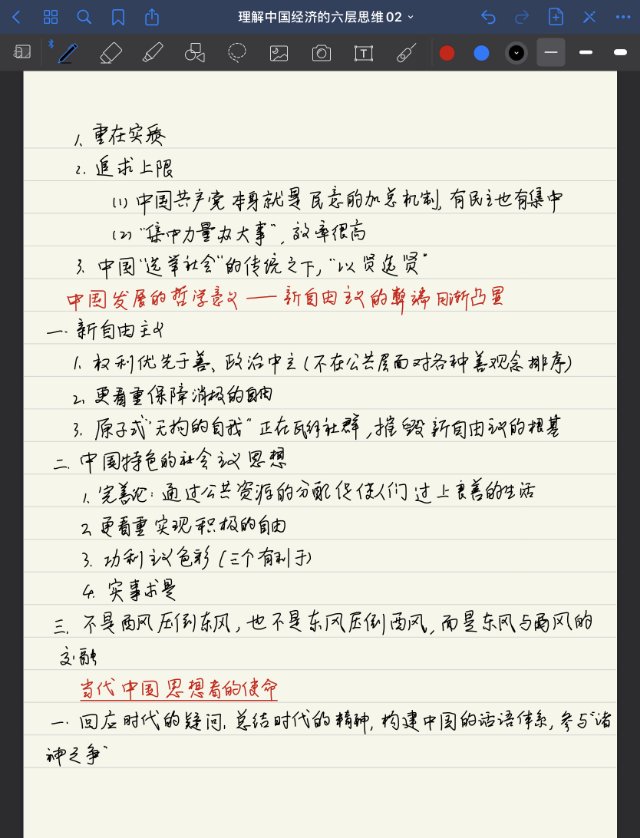 理解中国经济的六层思维02
1. 重在实质
2. 追求上限
(1) 中国共产党本身就是民意的加总机制, 有民主也有集中
(2) "集中力量办大事", 效率很高
3. 中国"选举社会"的传统之下, "以贤选贤"
中国发展的哲学意义——新自由主义的弊端日渐凸显
一. 新自由主义
1. 权利优先于善、政治中立(不在公共层面对各种善观念排序)
2. 更看重保障消极的自由
3. 原子式"无拘的自我"正在瓦解社群, 摧毁新自由主义的根基
二. 中国特色的社会主义思想
1. 完善论: 通过公共资源的分配促使人们过上良善的生活
2. 更看重实现积极的自由
3. 功利主义色彩(三个有利于)
4. 实事求是
三. 不是西风压倒东风, 也不是东风压倒西风, 而是东风与西风的
交融
当代中国思想者的使命
一. 回应时代的疑问, 总结时代的精神, 构建中国的话语体系, 参与"诸
神之争"